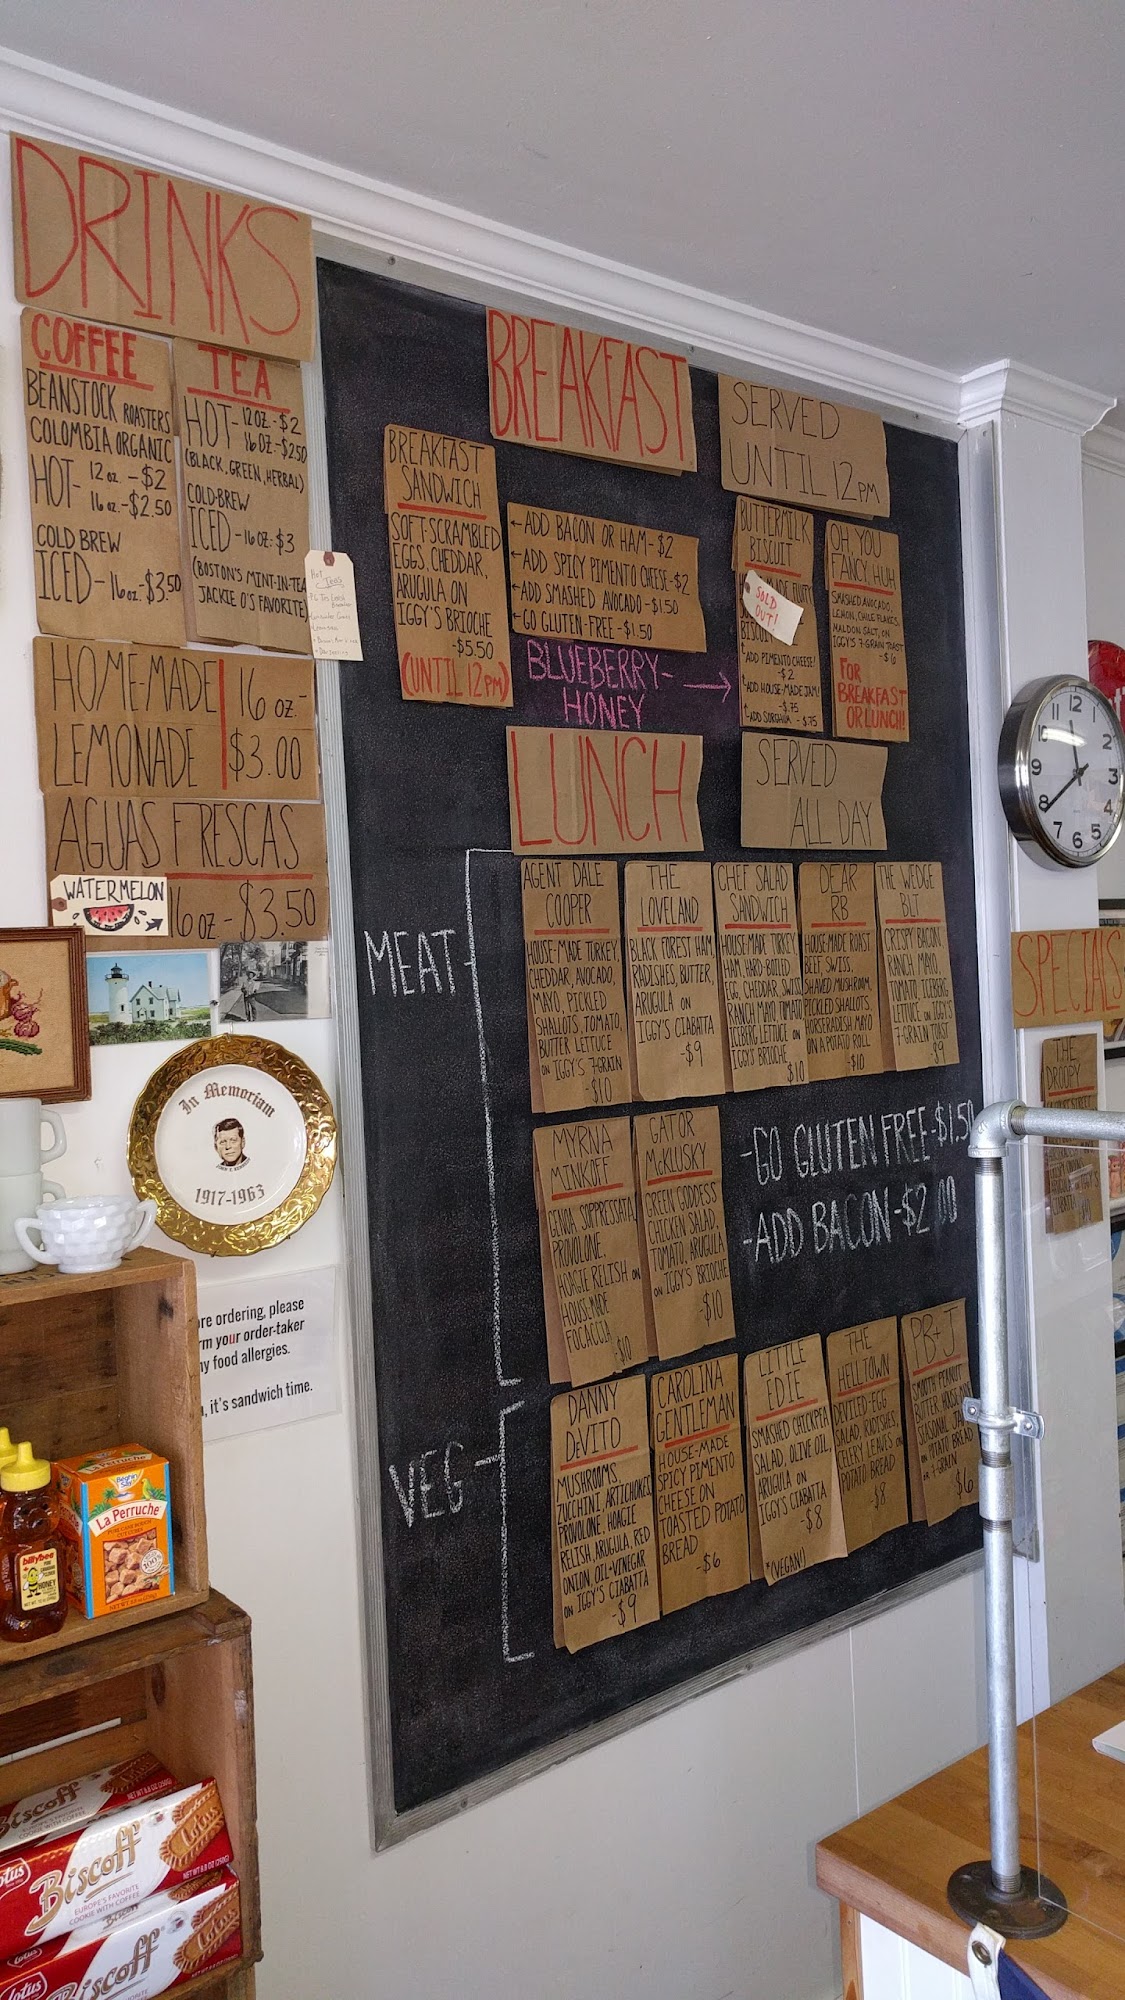 DRINKS
COFFEE
BEANSTOCK ROASTERS
COLOMBIA ORGANIC
HOT- 12 oz. -$2
16 oz. -$2.50
COLD BREW
ICED- 16 oz. -$3.50
TEA
HOT- 12 OZ. -$2
16 OZ. -$2.50
(BLACK, GREEN, HERBAL)
COLD-BREW
ICED -16 OZ. -$3
(BOSTON'S MINT-IN-TEA
JACKIE O'S FAVORITE)
Hot
Teas
HOME-MADE
LEMONADE
16 OZ-
$3.00
AGUAS FRESCAS
WATERMELON
16 OZ - $3.50
In Memoriam
1917-1963
re ordering, please
rm your order-taker
ny food allergies.
, it's sandwich time.
BREAKFAST
SERVED
UNTIL 12PM
BREAKFAST
SANDWICH
SOFT-SCRAMBLED
EGGS, CHEDDAR,
ARUGULA ON
IGGY'S BRIOCHE
-$5.50
(UNTIL 12PM)
←ADD BACON OR HAM-$2
←ADD SPICY PIMENTO CHEESE-$2
←ADD SMASHED AVOCADO-$1.50
←GO GLUTEN-FREE-$1.50
BLUEBERRY-
HONEY
BUTTERMILK
BISCUIT
SOLD
OUT!
ADD PIMENTO CHEESE!
-$2
ADD HOUSE-MADE JAM!
-$.75
ADD SORGHUM -$.75
OH YOU
FANCY, HUH
SMASHED AVOCADO,
LEMON, CHILE FLAKES,
MALDON SALT, ON
IGGY'S 7-GRAIN TOAST
-$6
FOR
BREAKFAST
OR LUNCH!
LUNCH
SERVED
ALL DAY
MEAT
AGENT DALE
COOPER
HOUSE-MADE TURKEY,
CHEDDAR, AVOCADO,
MAYO, PICKLED
SHALLOTS, TOMATO,
BUTTER LETTUCE
ON IGGY'S 7-GRAIN
-$10
THE
LOVELAND
BLACK FOREST HAM,
RADISHES, BUTTER,
ARUGULA ON
IGGY'S CIABATTA
-$9
CHEF SALAD
SANDWICH
HOUSE-MADE TURKEY,
HAM, HARD-BOILED
EGG, CHEDDAR, SWISS,
RANCH MAYO, TOMATO,
ICEBERG LETTUCE ON
IGGY'S BRIOCHE
$10
DEAR
RB
HOUSE-MADE ROAST
BEEF, SWISS,
SHAVED MUSHROOM,
PICKLED SHALLOTS,
HORSERADISH MAYO
ON A POTATO ROLL
-$10
THE WEDGE
BLT
CRISPY BACON,
RANCH MAYO,
TOMATO, ICEBERG
LETTUCE ON IGGY'S
7-GRAIN TOAST
-$9
MYRNA
MINKOFF
GENOA, SOPPRESSATA,
PROVOLONE,
HOAGIE RELISH ON
HOUSE-MADE
FOCACCIA
-$10
GATOR
McKLUSKY
GREEN GODDESS
CHICKEN SALAD,
TOMATO, ARUGULA
ON IGGY'S BRIOCHE
-$10
-GO GLUTEN FREE-$1.50
-ADD BACON-$2.00
VEG
DANNY
DeVITO
MUSHROOMS,
ZUCCHINI, ARTICHOKES,
PROVOLONE, HOAGIE
RELISH, ARUGULA, RED
ONION, OIL+VINEGAR
ON IGGY'S CIABATTA
-$9
CAROLINA
GENTLEMAN
HOUSE-MADE
SPICY PIMENTO
CHEESE ON
TOASTED POTATO
BREAD -$6
LITTLE
EDIE
SMASHED CHICKPEA
SALAD, OLIVE OIL,
ARUGULA ON
IGGY'S CIABATTA
-$8
*(VEGAN!)
THE
HELLTOWN
DEVILED-EGG
SALAD, RADISHES,
CELERY LEAVES ON
POTATO BREAD
-$8
PB+J
SMOOTH PEANUT
BUTTER, HOUSE-MADE
SEASONAL
ON POTATO BREAD
OR 7-GRAIN
$6
12
1
2
3
4
5
6
7
8
9
10
11
SPECIALS
THE
DROOPY
billybee
HONEY
Béghin
Say
La Perruche
Biscoff
Lotus
Biscoff
EUROPE'S FAVORITE
COOKIE WITH COFFEE
NET WT 8.8 OZ (250G)
Lotus
Biscoff
Lotus